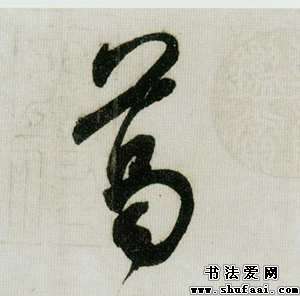 葛
书法爱网
www.shufaai.com